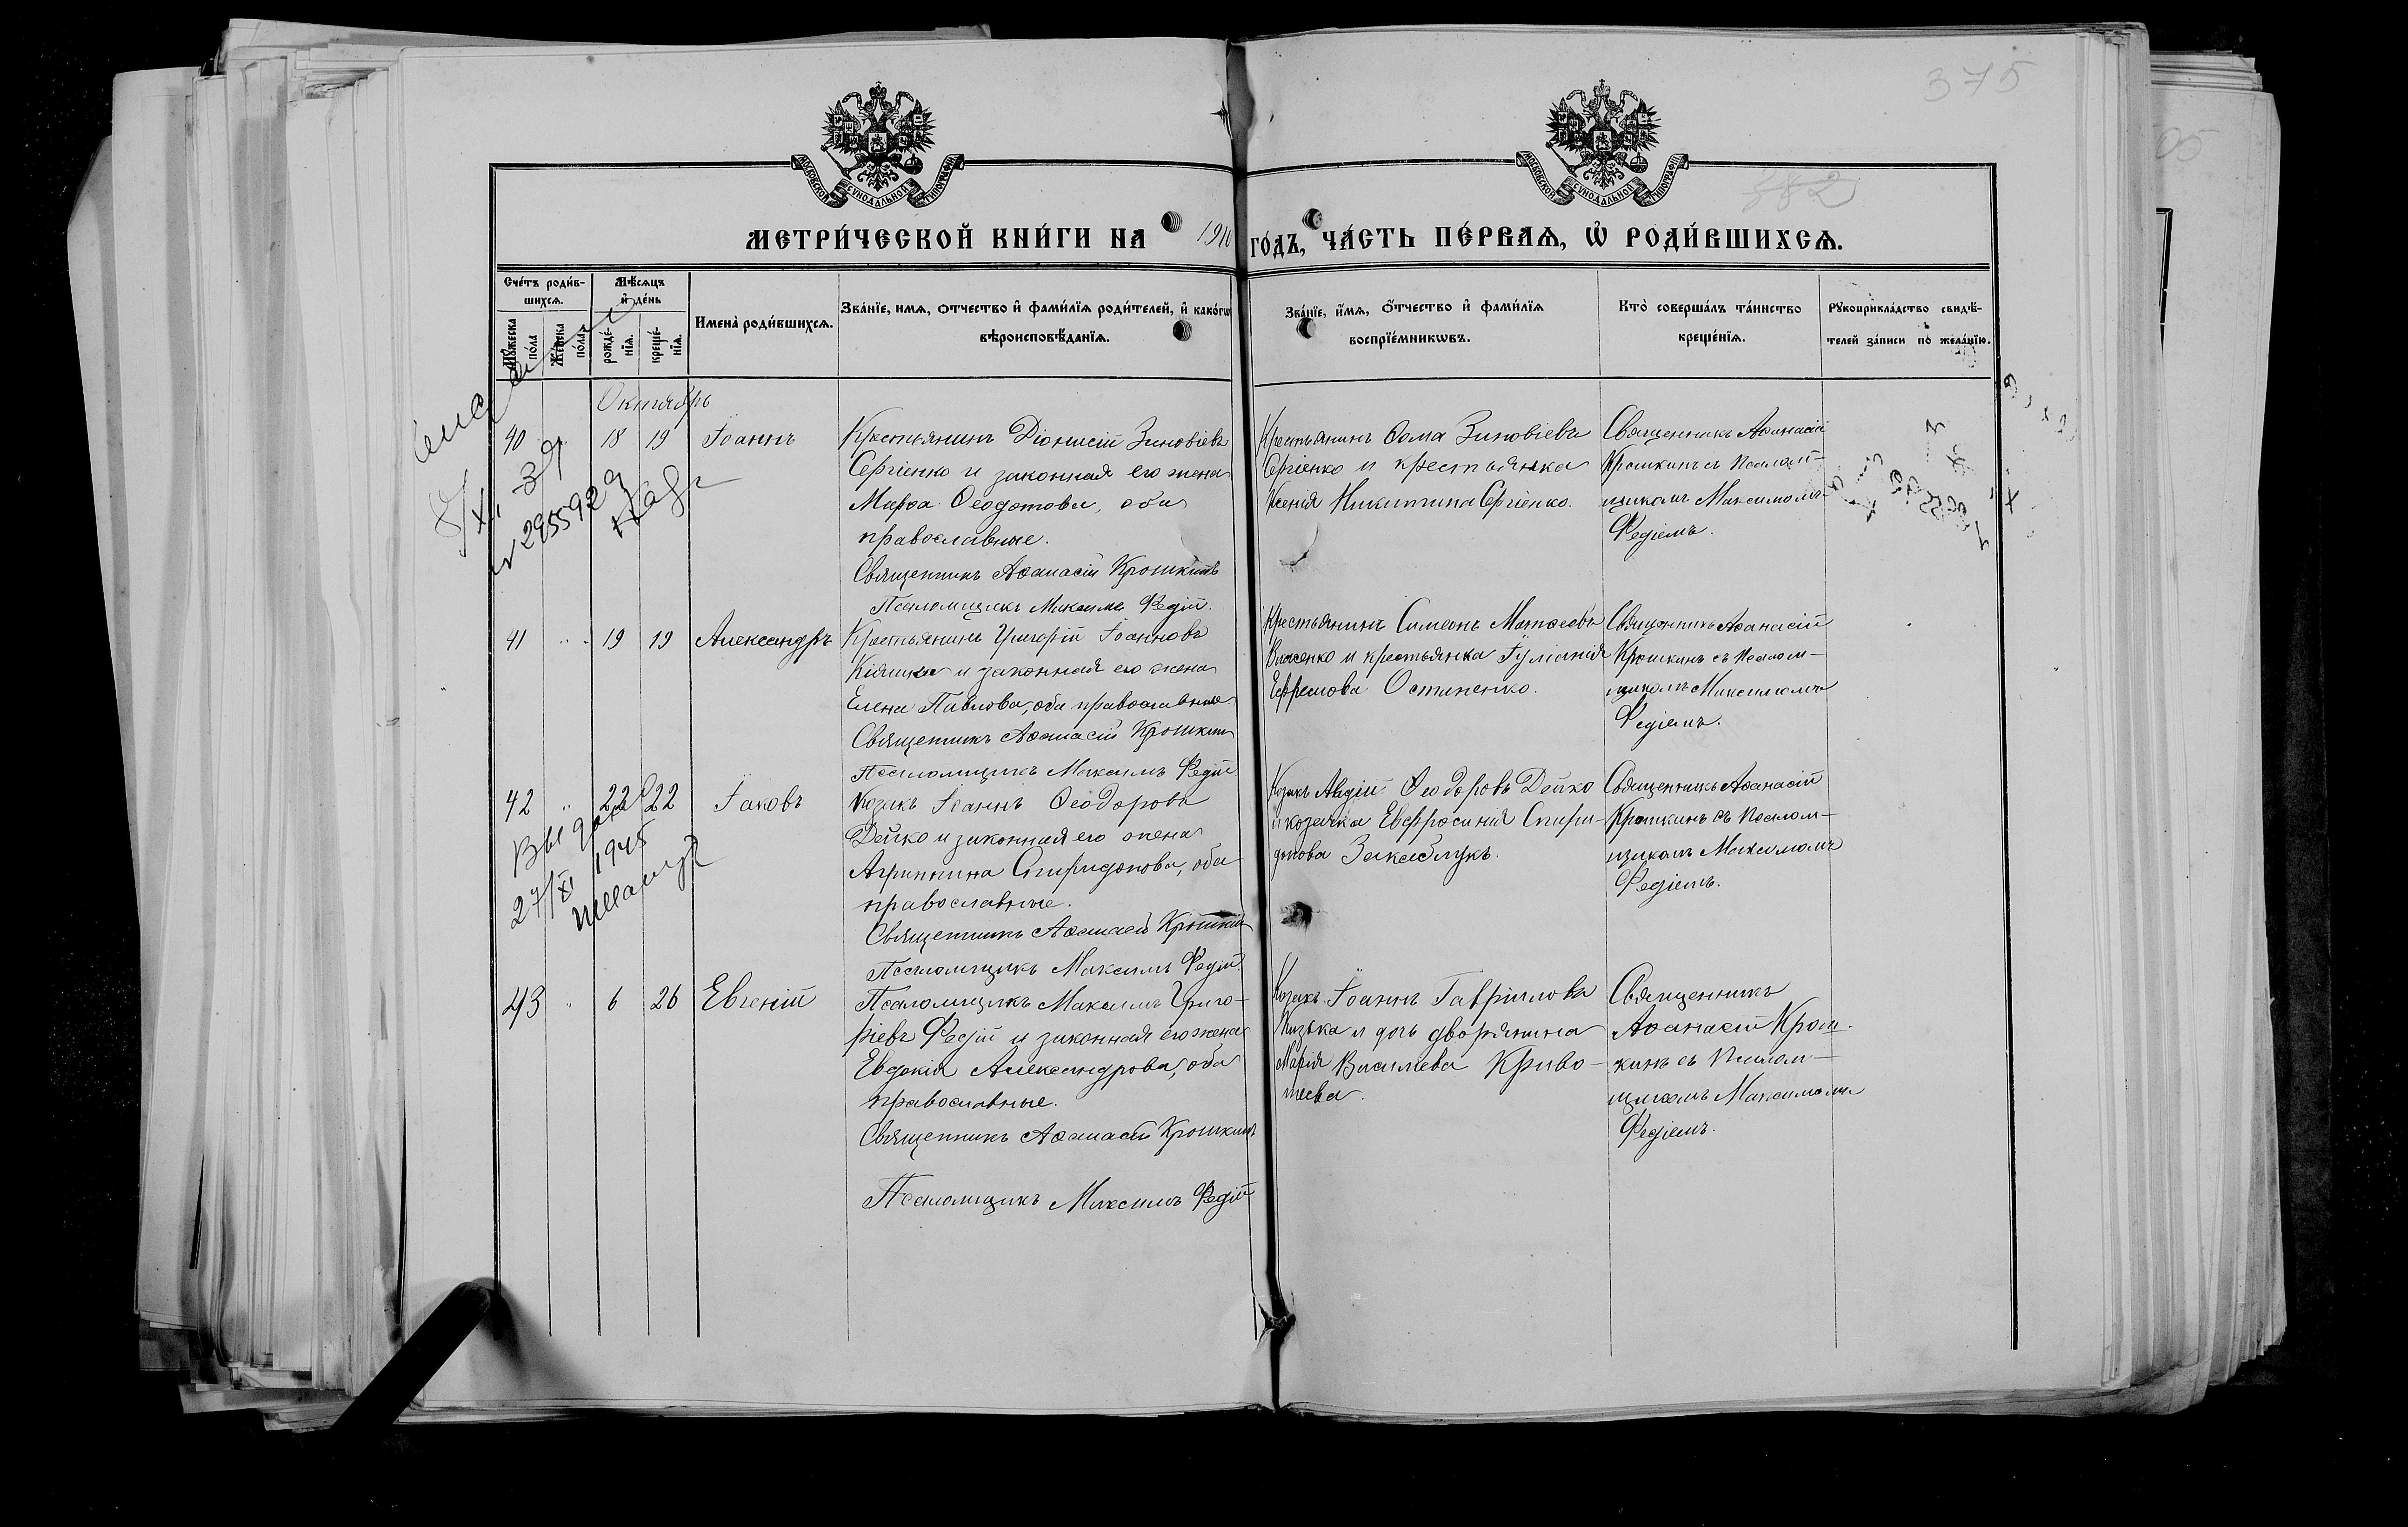 375
382
МОСКОВСКОЙ СѴНОДАЛЬНОЙ ТИПОГРАФІИ
МОСКОВСКОЙ СѴНОДАЛЬНОЙ ТИПОГРАФІИ
МЕТРИ́ЧЕСКОЙ КНИ́ГИ НА 1910 ГО́ДЪ, ЧА́СТЬ ПЕ́РВАѦ, Ѡ РОДИ́ВШИХСѦ.
Сче́тъ роди́в-
шихсѧ.
Мꙋ́жеска по́ла
Же́нска по́ла
Мѣ́сѧцъ
и҆ де́нь
рожде́-
нїѧ.
креще́-
нїѧ.
Имена̀ роди́вшихсѧ.
Зва́нїе, имѧ, отчество и҆ фами́лїѧ роди́телей, и҆ како́гѡ
вѣроисповѣ́данїѧ.
Зва́нїе, и҆́мѧ, о҆́тчество и҆ фами́лїѧ
воспрїе́мникѡвъ.
Кто̀ соверша́лъ та́инство
креще́нїѧ.
Рꙋкоприкла́дство свидѣ́-
телей за́писи по жела́нїю.
Октябрь
40 " 18 19 Іоаннъ
Крестьянинъ Діонисій Зиновіевъ
Сергіенко и законная его жена
Марѳа Ѳеодотова, оба
православные.
Священникъ Аѳанасій Крошкинъ
Псаломщикъ Максимъ Федій.
Крестьянинъ Ѳома Зиновіевъ
Сергіенко и крестьянка
Ксенія Никитина Сергіенко.
Священникъ Аѳанасій
Крошкинъ съ Псалом-
щикомъ Максимомъ
Федіемъ.
8/XI 39
№ 295592
41 " 19 19 Александръ
Крестьянинъ Григорій Іоанновъ
Кіяшка и законная его жена
Елена Павлова, оба православные
Священникъ Аѳанасій Крошкинъ
Псаломщикъ Максимъ Федій.
Крестьянинъ Симеонъ Матѳеевъ
Власенко и крестьянка Іуліанія
Ефремова Остапенко.
Священникъ Аѳанасій
Крошкинъ съ Псалом-
щикомъ Максимомъ
Федіемъ.
42 " 22 22 Іаковъ
Козакъ Іоаннъ Ѳеодоровъ
Дейко и законная его жена
Агриппина Спиридонова, оба
православные.
Священникъ Аѳанасій Крошкинъ
Псаломщикъ Максимъ Федій.
Козакъ Авдій Ѳеодоровъ Дейко
и козачка Евфросинія Спири-
донова Закаблукъ.
Священникъ Аѳанасій
Крошкинъ съ Псалом-
щикомъ Максимомъ
Федіемъ.
27/XI 1945
43 " 6 26 Евгеній
Псаломщикъ Максимъ Григо-
ріевъ Федій и законная его жена
Евдокія Александрова, оба
православные.
Священникъ Аѳанасій Крошкинъ
Псаломщикъ Максимъ Федій
Козакъ Іоаннъ Гавріиловъ
и дочь дворянина
Марія Васильева Криво-
шеева.
Священникъ
Аѳанасій Крош-
кинъ съ Псалом-
щикомъ Максимомъ
Федіемъ.